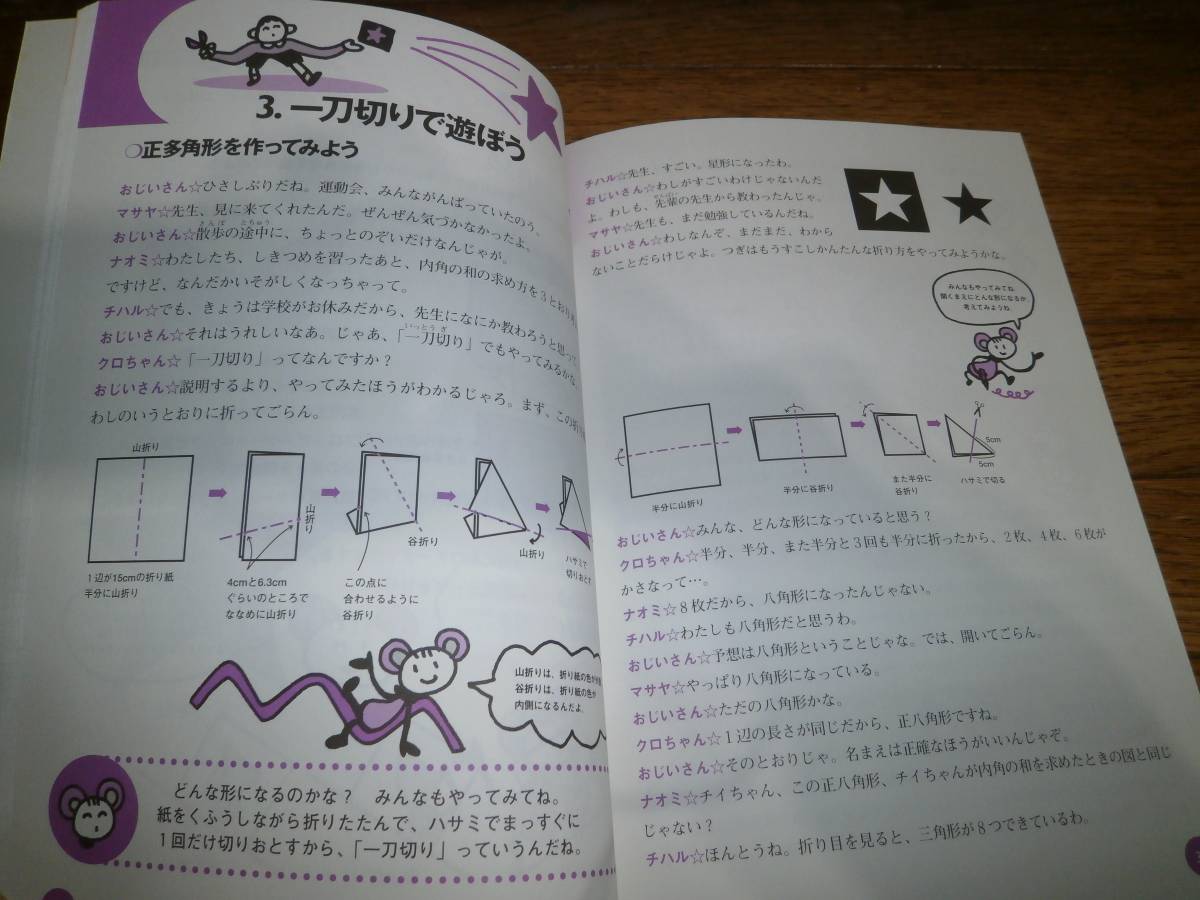 3. 一刀切りで遊ぼう
○正多角形を作ってみよう
おじいさん☆ひさしぶりだね。運動会、みんながんばっていたのう。
マサヤ☆先生、見に来てくれたんだ。ぜんぜん気づかなかったよ。
おじいさん☆散歩の途中に、ちょっとのぞいだけなんじゃが。
ナオミ☆わたしたち、しきつめを習ったあと、内角の和の求め方を3とおり
ですけど、なんだかいそがしくなっちゃって。
チハル☆でも、きょうは学校がお休みだから、先生になにか教わろうと思って
おじいさん☆それはうれしいなあ。じゃあ、「一刀切り」でもやってみるかな。
クロちゃん☆「一刀切り」ってなんですか？
おじいさん☆説明するより、やってみたほうがわかるじゃろ。まず、この
わしのいうとおりに折ってごらん。
山折り
1辺が15cmの折り紙
半分に山折り
山折り
4cmと6.3cm
ぐらいのところで
ななめに山折り
この点に
合わせるように
谷折り
谷折り
山折り
ハサミで
切りおとす
山折りは、折り紙の色が
谷折りは、折り紙の色が
内側になるんだよ。
どんな形になるのかな？　みんなもやってみてね。
紙をくふうしながら折りたたんで、ハサミでまっすぐに
1回だけ切りおとすから、「一刀切り」っていうんだね。
チハル☆先生、すごい。星形になったわ。
おじいさん☆わしがすごいわけじゃないんだ
よ。わしも、先輩の先生から教わったんじゃ。
マサヤ☆先生も、まだ勉強しているんだね。
おじいさん☆わしなんぞ、まだまだ、わから
ないことだらけじゃよ。つぎはもうすこしかんたんな折り方をやってみようかな。
みんなもやってみてね。
開くまえにどんな形になるか
考えてみようね。
半分に山折り
半分に谷折り
また半分に
谷折り
5cm
5cm
ハサミで切る
おじいさん☆みんな、どんな形になっていると思う？
クロちゃん☆半分、半分、また半分と3回も半分に折ったから、2枚、4枚、6枚が
かさなって…。
ナオミ☆8枚だから、八角形になったんじゃない。
チハル☆わたしも八角形だと思うわ。
おじいさん☆予想は八角形ということじゃな。では、開いてごらん。
マサヤ☆やっぱり八角形になっている。
おじいさん☆ただの八角形かな。
クロちゃん☆1辺の長さが同じだから、正八角形ですね。
おじいさん☆そのとおりじゃ。名まえは正確なほうがいいんじゃぞ。
ナオミ☆チイちゃん、この正八角形、チイちゃんが内角の和を求めたときの図と同じ
じゃない？
チハル☆ほんとうね。折り目を見ると、三角形が8つできているわ。